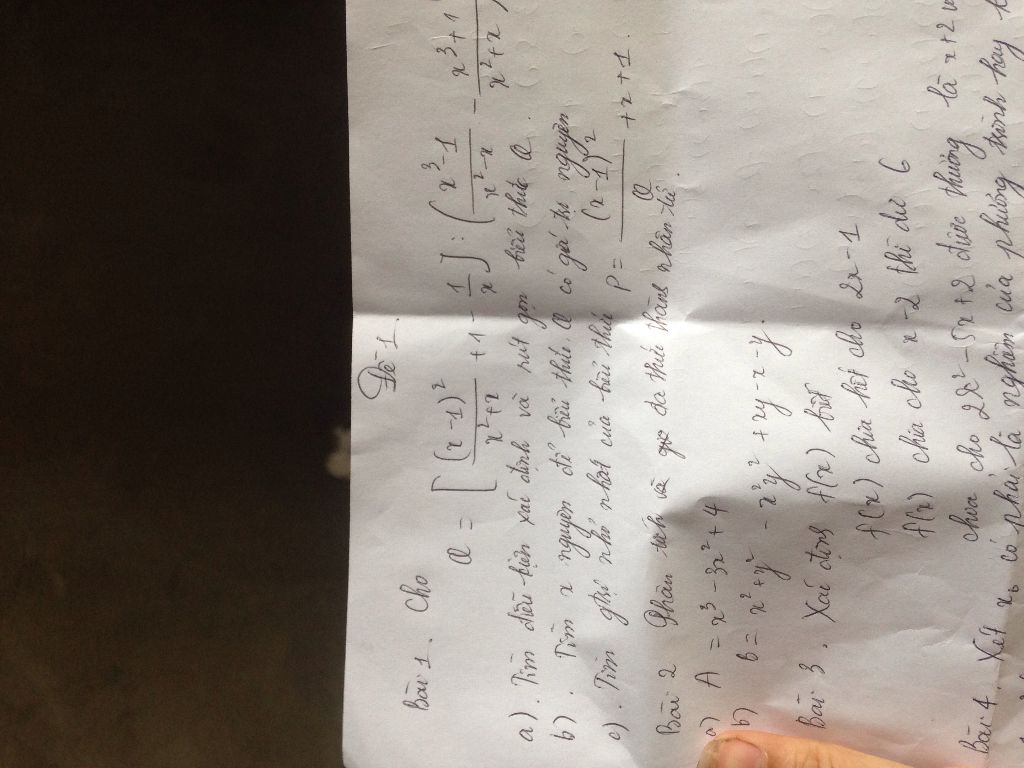 Đề 1.
Bài 1. Cho
Q = [ (x-1)² / x²+x + 1 - 1/x ] : ( x³-1 / x²-x - x³+1 / x²+x
a). Tìm điều kiện xác định và rút gọn biểu thức Q.
b). Tìm x nguyên để biểu thức Q có giá trị nguyên
c). Tìm nhỏ nhất của biểu thức P = (x-1)² / Q + x + 1.
Bài 2 Phân tích đa thức thành nhân tử.
a) A = x³ - 3x² + 4
b) B = x² + y² - x²y² + xy - x - y.
Bài 3. Xác định f(x) biết
f(x) chia hết cho 2x - 1
f(x) chia cho x - 2 thì dư 6
chia cho 2x² - 5x + 2 được thương là x + 2
Bài 4. Xét x₀ có phải là nghiệm của phương trình hay